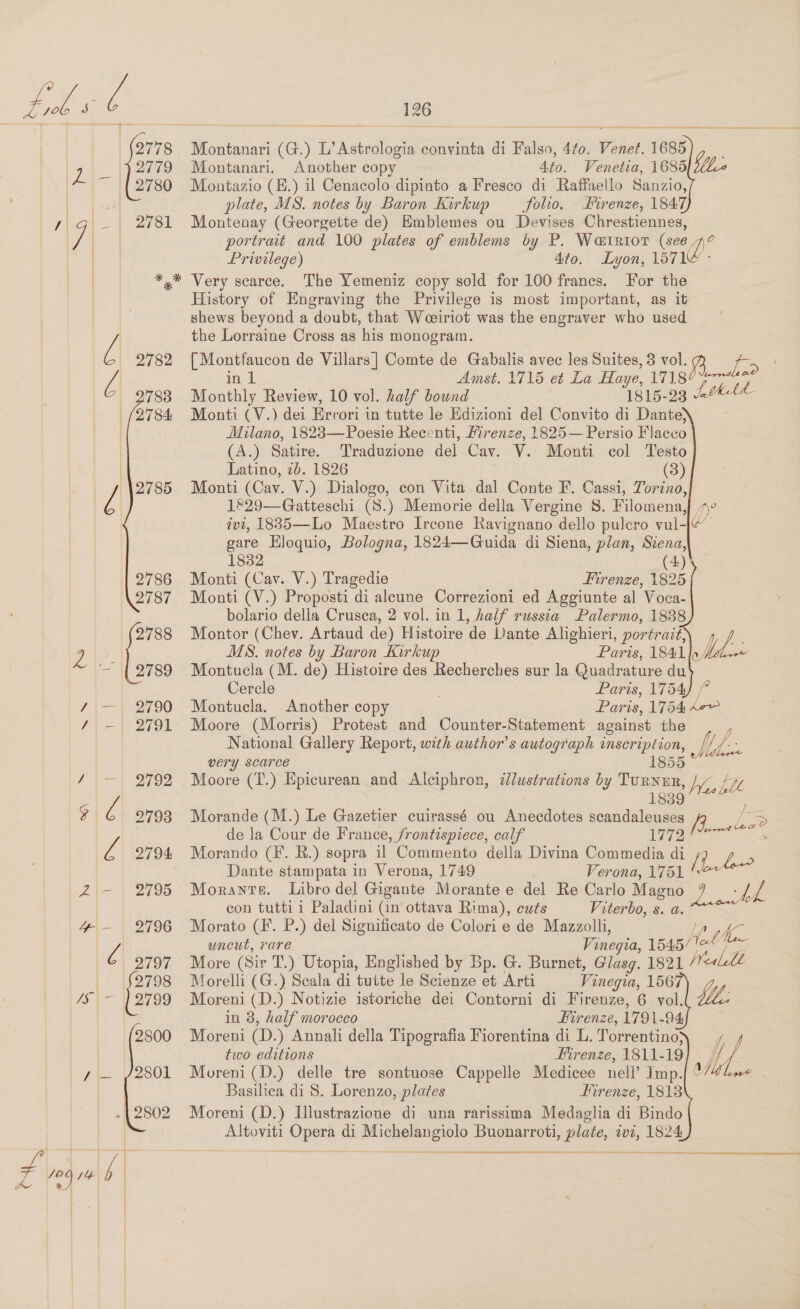 126
2778 Montanari (G.) L'Astrologia convinta di Falso, 4to. Venet. 1685
2779 Montanari. Another copy 4to. Venetia, 1685
2 - 2780 Montazio (E.) il Cenacolo dipinto a Fresco di Raffaello Sanzio,
plate, MS. notes by Baron Kirkup folio. Firenze, 1847
1 9 - 2781 Montenay (Georgette de) Emblemes ou Devises Chrestiennes,
portrait and 100 plates of emblems by P. Wœiriot (see
Privilege) 4to. Lyon, 1571
*** Very scarce. The Yemeniz copy sold for 100 francs. For the
History of Engraving the Privilege is most important, as it
shews beyond a doubt, that Wœiriot was the engraver who used
the Lorraine Cross as his monogram.
6 2782 [Montfaucon de Villars] Comte de Gabalis avec les Suites, 3 vol.
in 1 Amst. 1715 et La Haye, 1718
6 2783 Monthly Review, 10 vol. half bound 1815-23
2784 Monti (V.) dei Errori in tutte le Edizioni del Convito di Dante,
Milano, 1823—Poesie Recenti, Firenze, 1825—Persio Flacco
(A.) Satire. Traduzione del Cav. V. Monti col Testo
Latino, ib. 1826 (3)
6 2785 Monti (Cav. V.) Dialogo, con Vita dal Conte F. Cassi, Torino,
1829—Gatteschi (S.) Memorie della Vergine S. Filomena,
ivi, 1835—Lo Maestro Ircone Ravignano dello pulcro vul-
gare Eloquio, Bologna, 1824—Guida di Siena, plan, Siena,
1832 (4)
2786 Monti (Cav. V.) Tragedie Firenze, 1825
2787 Monti (V.) Proposti di alcune Correzioni ed Aggiunte al Voca-
bolario della Crusca, 2 vol. in 1, half russia Palermo, 1838
2788 Montor (Chev. Artaud de) Histoire de Dante Alighieri, portrait,
MS. notes by Baron Kirkup Paris, 1841
2 - 2789 Montucla (M. de) Histoire des Recherches sur la Quadrature du
Cercle Paris, 1754
1 - 2790 Montucla. Another copy Paris, 1754
1 - 2791 Moore (Morris) Protest and Counter-Statement against the
National Gallery Report, with author's autograph inscription,
very scarce 1855
1 - 2792 Moore (T.) Epicurean and Alciphron, illustrations by Turner,
1839
6 2793 Morande (M.) Le Gazetier cuirassé ou Anecdotes scandaleuses
de la Cour de France, frontispiece, calf 1772
6 2794 Morando (F. R.) sopra il Commento della Divina Commedia di
Dante stampata in Verona, 1749 Verona, 1751
2 - 2795 Morante. Libro del Gigante Morante e del Re Carlo Magno
con tutti i Paladini (in ottava Rima), cuts Viterbo, s. a.
4 - 2796 Morato (F. P.) del Significato de Colori e de Mazzolli,
uncut, rare Vinegia, 1545
6 2797 More (Sir T.) Utopia, Englished by Bp. G. Burnet, Glasg. 1821
2798 Morelli (G.) Scala di tutte le Scienze et Arti Vinegia, 1567
15 - 2799 Moreni (D.) Notizie istoriche dei Contorni di Firenze, 6 vol.
in 3, half morocco Firenze, 1791-94
2800 Moreni (D.) Annali della Tipografia Fiorentina di L. Torrentino,
two editions Firenze, 1811-19
1 - 2801 Moreni (D.) delle tre sontuose Cappelle Medicee nell' Imp.
Basilica di S. Lorenzo, plates Firenze, 1813
2802 Moreni (D.) Illustrazione di una rarissima Medaglia di Bindo
Altoviti Opera di Michelangiolo Buonarroti, plate, ivi, 1824